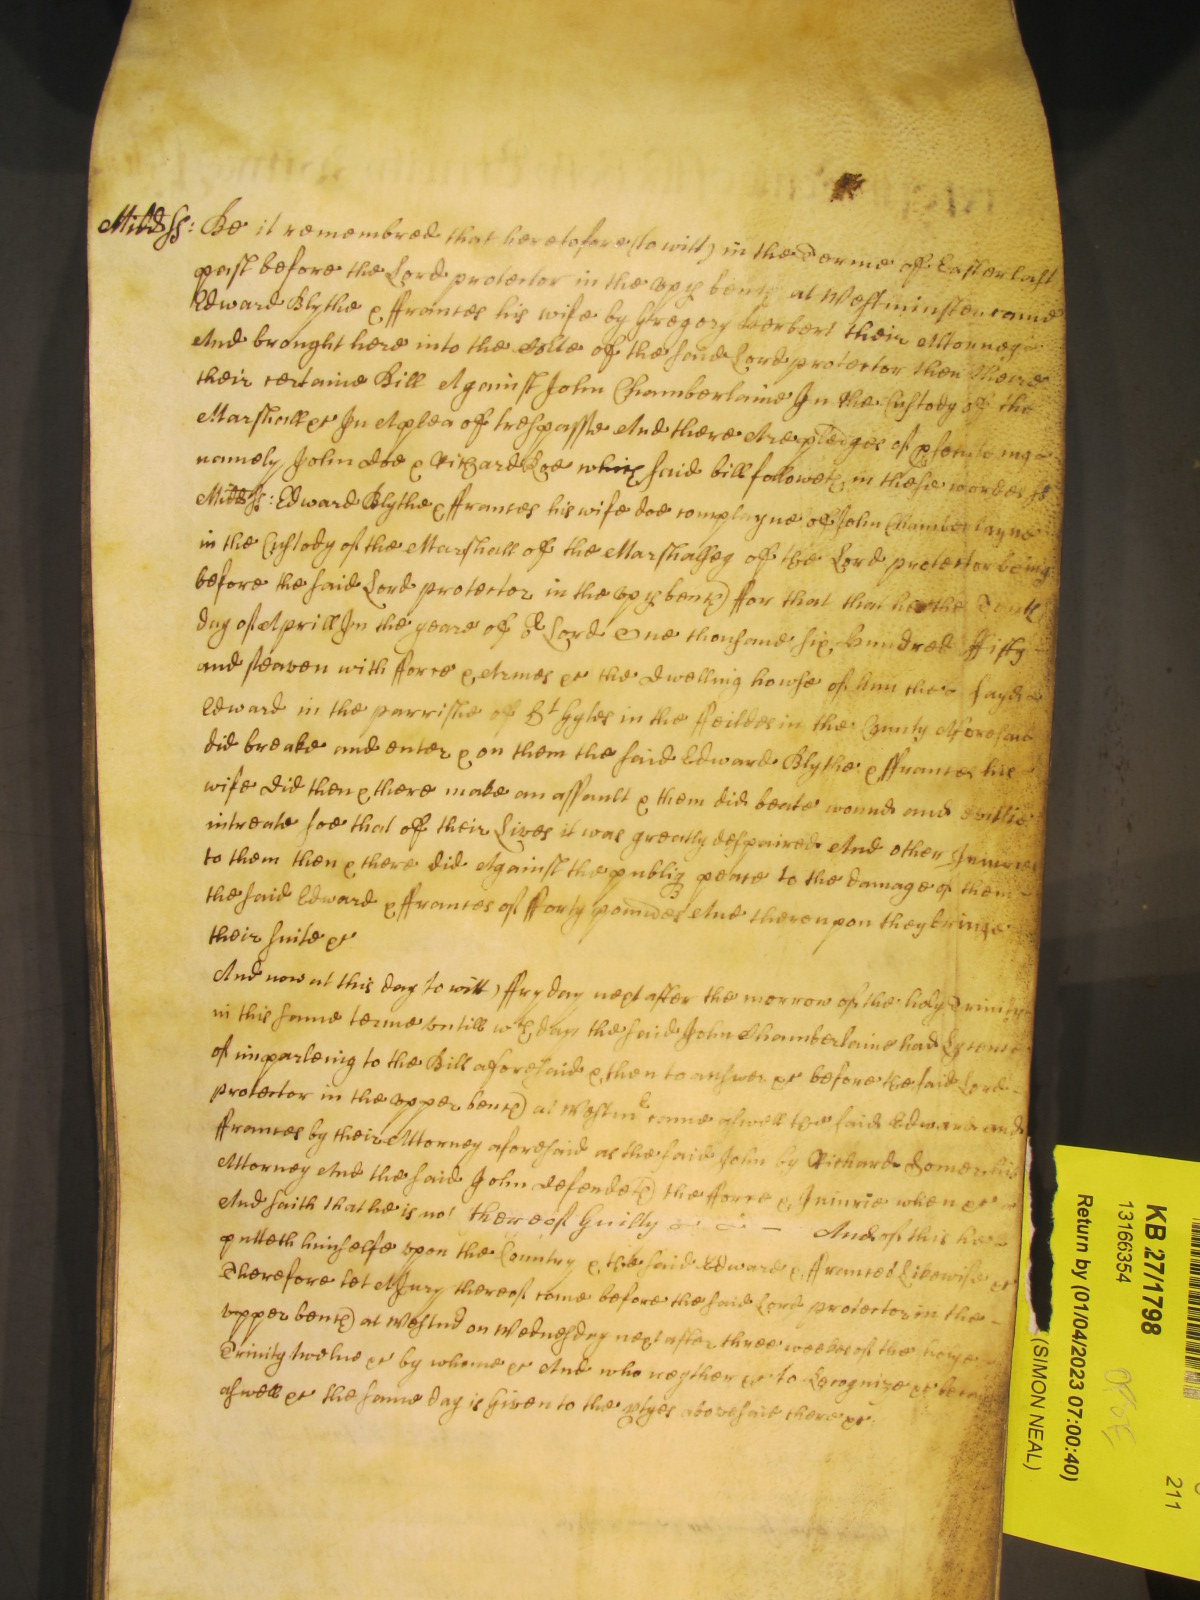 Midd ss: Be it remembred that heretofore (to witt) in the Terme of Easter last
past before the Lord protector in the upp bench at Westminster came
Edward Blythe & ffrances his wife by Gregory Herbert their Attorney
And brought here into the Court of the said Lord protector then there
their certaine Bill Against John Chamberlaine In the Custody of the
Marshall &c In A plea of trespasse And there Are pledges of
namely John Doe & Richard Roe which said bill followeth in these wordes ss
Midd ss: Edward Blythe & ffrances his wife doe complayne of John Chamberlayne
in the Custody of the Marshall of the Marshalsey of the Lord protector being
before the said Lord protector in the upp bench ffor that that hee the Tenth
day of Aprill In the yeare of or Lord One thousand six hundred ffifty
and seaven with fforce & Armes &c the dwelling howse of him the sayd
Edward in the parrishe of St Gyles in the ffeildes in the County Aforesaid
did breake and enter & on them the said Edward Blythe & ffrances his
wife did then & there make an assault & them did beate wound and evillie
intreate soe that of their Lives it was greatly despaired And other Iniuries
to them then & there did Against the publiq peace to the damage of them
the said Edward & ffrances of fforty poundes And thereupon they bringe
their suite &c
And now at this day to witt) ffryday next after the morrow of the holy Trinity
in this same terme untill wch day the said John Chamberlaine had Lycence
of imparleing to the Bill aforesaid & then to answer &c before the said Lord
protector in the upper bench at Westmr came aswell the said Edward and
ffrances by their Attorney aforesaid as the said John by Richard his
Attorney And the said John defendeth the fforce & Iniurie when &c
And saith that he is not thereof Guilty And of this hee
putteth himselfe upon the Country & the said Edward & ffrances Likewise &c
Therefore let A Jury thereof come before the said Lord protector in the
upper bench at Westmr on Wednesday next after three weekes of the holye
Trinity twelve &c by whome &c And who neyther &c to Recognize &c because
aswell &c the same day is Given to the ptyes abovesaid there &c
KB 27/1798
13166354
Return by (01/04/2023 07:00:40)
(SIMON NEAL)
211